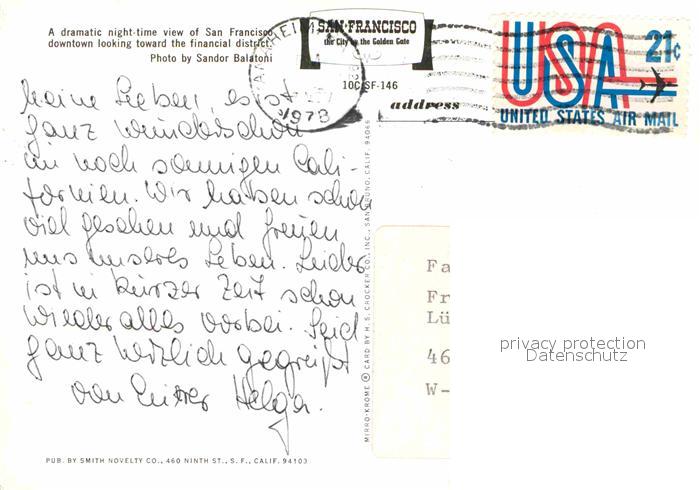 A dramatic night-time view of San Francisco
downtown looking toward the financial district.
Photo by Sandor Balatoni
SAN FRANCISCO
the City by the Golden Gate
10C SF-146
address
1973
USA 21c
UNITED STATES AIR MAIL
Meine Lieben, es ist
ganz wunderschön
im noch sonnigen Cali-
fornien. Wir haben schon
viel gesehen und freuen
uns unseres Lebens. Leider
ist in kurzer Zeit schon
wieder alles vorbei. Seid
ganz herzlich gegrüßt
von Eurer Helga.
MIRRO-KROME ® CARD BY H. S. CROCKER CO., INC., SAN BRUNO, CALIF. 94066
Fa
Fr
Lü
46
W-
privacy protection
Datenschutz
PUB. BY SMITH NOVELTY CO., 460 NINTH ST., S. F., CALIF. 94103